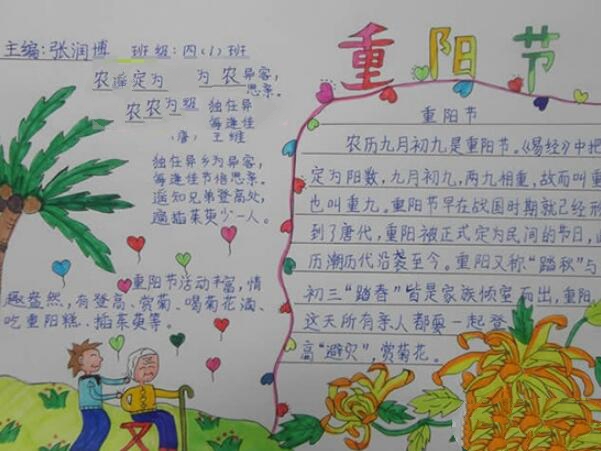 主编:张润博 班级:四(1)班
农遥定为 为农异客,
思亲。
农农为组 独在异
每逢佳
(唐) 王维
独在异乡为异客,
每逢佳节倍思亲。
遥知兄弟登高处,
遍插茱萸少一人。
重阳节活动丰富,情
趣盎然,有登高、赏菊、喝菊花酒、
吃重阳糕、插茱萸等。
重阳节
重阳节
农历九月初九是重阳节。《易经》中把
定为阳数,九月初九,两九相重,故而叫重
也叫重九。重阳节早在战国时期就已经形
到了唐代,重阳被正式定为民间的节日,
历潮历代沿袭至今。重阳又称“踏秋”与
初三“踏春”皆是家族倾室而出,重阳
这天所有亲人都要一起登
高“避灾”,赏菊花。